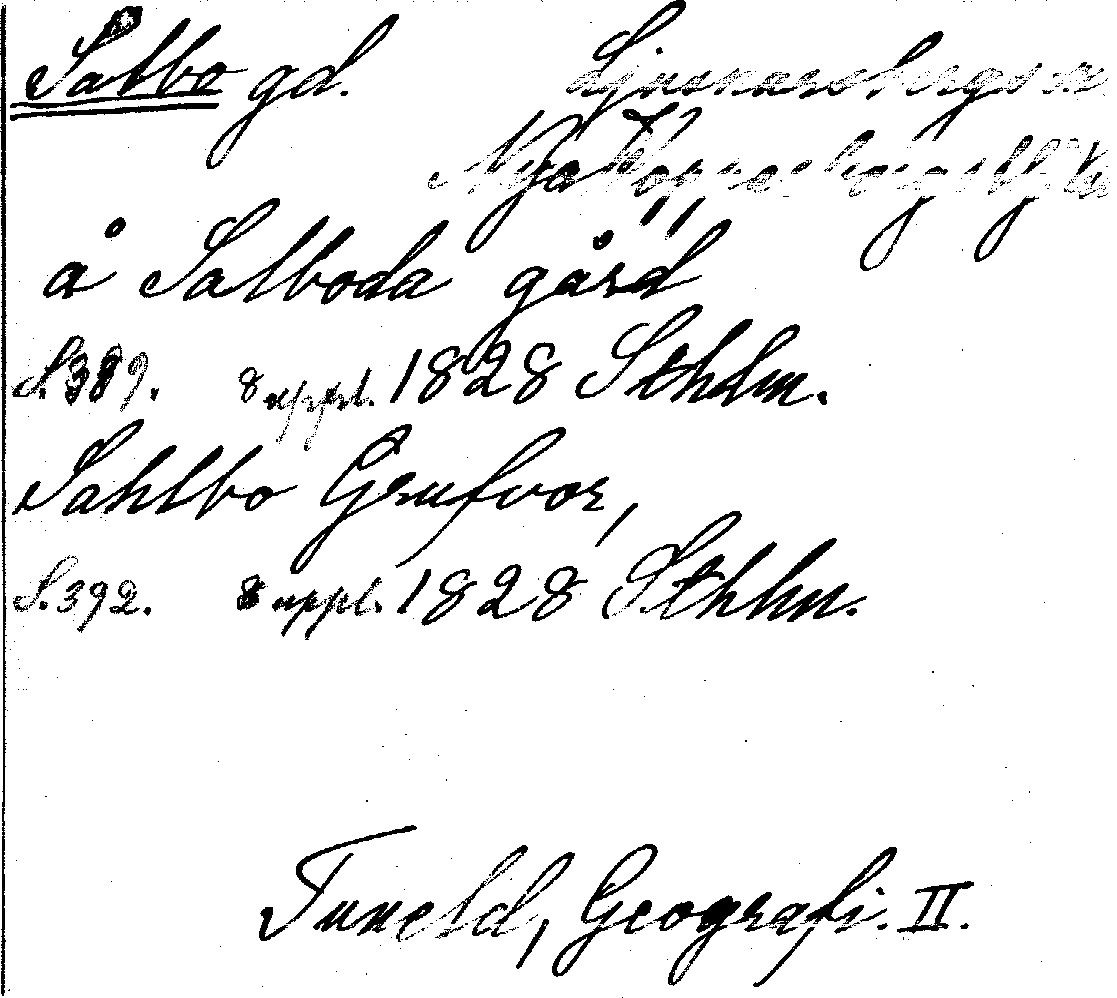 Salbo gd. Ljusnarsbergs
Nya Kopparbergs
å Salboda gård
S.389. 8 uppl. 1828 Sthlm.
Sahlbo Grufvor,
S.392. 8 uppl. 1828 Sthlm.
Tuneld, Geografi. II.